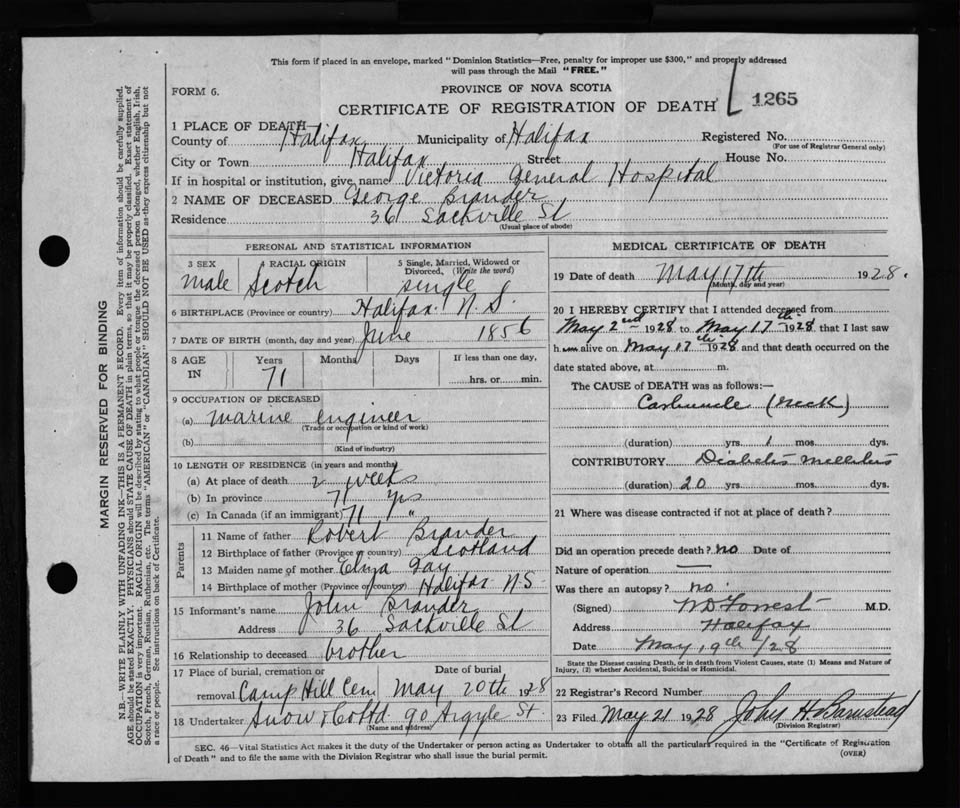 This form if placed in an envelope, marked "Dominion Statistics—Free, penalty for improper use $300," and properly addressed
will pass through the Mail "FREE."
FORM 6.
PROVINCE OF NOVA SCOTIA
CERTIFICATE OF REGISTRATION OF DEATH 1265
1 PLACE OF DEATH
County of Halifax Municipality of Halifax Registered No.
(For use of Registrar General only)
City or Town Halifax Street House No.
If in hospital or institution, give name Victoria General Hospital
2 NAME OF DECEASED George Brander
Residence 36 Sackville St
(Usual place of abode)
PERSONAL AND STATISTICAL INFORMATION
3 SEX 4 RACIAL ORIGIN 5 Single, Married, Widowed or
Divorced, (Write the word)
male Scotch single
6 BIRTHPLACE (Province or country) Halifax N.S.
7 DATE OF BIRTH (month, day and year) June 1856
8 AGE IN Years Months Days If less than one day,
71 hrs. or min.
9 OCCUPATION OF DECEASED
(a) marine engineer
(Trade or occupation or kind of work)
(b)
(Kind of industry)
10 LENGTH OF RESIDENCE (in years and months)
(a) At place of death 2 weeks
(b) In province 71 yrs
(c) In Canada (if an immigrant) 71 "
Parents
11 Name of father Robert Brander
12 Birthplace of father (Province or country) Scotland
13 Maiden name of mother Eliza Gay
14 Birthplace of mother (Province or country) Halifax N.S
15 Informant's name John Brander
Address 36 Sackville St
16 Relationship to deceased brother
17 Place of burial, cremation or Date of burial
removal Camp Hill Cem May 20th 1928
18 Undertaker Snow & Co Ltd 90 Argyle St
(Name and address)
MEDICAL CERTIFICATE OF DEATH
19 Date of death May 17th 1928.
(Month, day and year)
20 I HEREBY CERTIFY that I attended deceased from
May 2nd 1928 to May 17th 1928 that I last saw
him alive on May 17th 1928 and that death occurred on the
date stated above, at m.
The CAUSE of DEATH was as follows:—
Carbuncle (neck)
(duration) yrs. 1 mos. dys.
CONTRIBUTORY Diabetis mellitus
(duration) 20 yrs. mos. dys.
21 Where was disease contracted if not at place of death?
Did an operation precede death? no Date of
Nature of operation —
Was there an autopsy? no.
(Signed) WD Forrest M.D.
Address Halifax
Date May 19th /28
State the Disease causing Death, or in death from Violent Causes, state (1) Means and Nature of
Injury, (2) whether Accidental, Suicidal or Homicidal.
22 Registrar's Record Number
23 Filed May 21 1928 John H. Barnstead
(Division Registrar)
SEC. 46—Vital Statistics Act makes it the duty of the Undertaker or person acting as Undertaker to obtain all the particulars required in the "Certificate of Registration
of Death" and to file the same with the Division Registrar who shall issue the burial permit. (OVER)
MARGIN RESERVED FOR BINDING
N.B.—WRITE PLAINLY WITH UNFADING INK—THIS IS A PERMANENT RECORD. Every item of information should be carefully supplied.
AGE should be stated EXACTLY. PHYSICIANS should STATE CAUSE OF DEATH in plain terms, so that it may be properly classified. Exact statement of
OCCUPATION is very important. RACIAL ORIGIN will be described by stating to what people or tongue the deceased person belonged, whether English, Irish,
Scotch, French, German, Russian, Ruthenian, etc. The terms "AMERICAN" or "CANADIAN" SHOULD NOT BE USED as they express citizenship but not
a race or people. See instructions on back of Certificate.